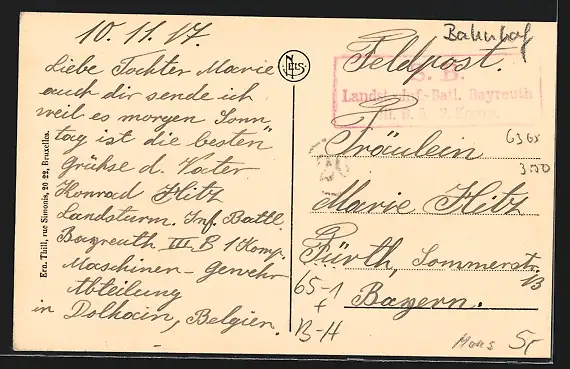 10.11.17.
Liebe Tochter Marie
auch dir sende ich
weil es morgen Sonn
tag ist die besten
Grühse d. Vater
Konrad Hitz
Landsturm. Inf. Battl.
Bayreuth III. B 1 Komp.
Maschinen-Gewehr
Abteilung
in Dolhain, Belgien.
Ern. Thill, rue Simonis, 20-22, Bruxelles.
NELS
Bahnhof
Feldpost.
S. B.
Landst.-Inf.-Batl. Bayreuth
Fräulein
Marie Hitz
Fürth, Sommerstr.
13
Bayern.
65-1
+
B-H
Mons